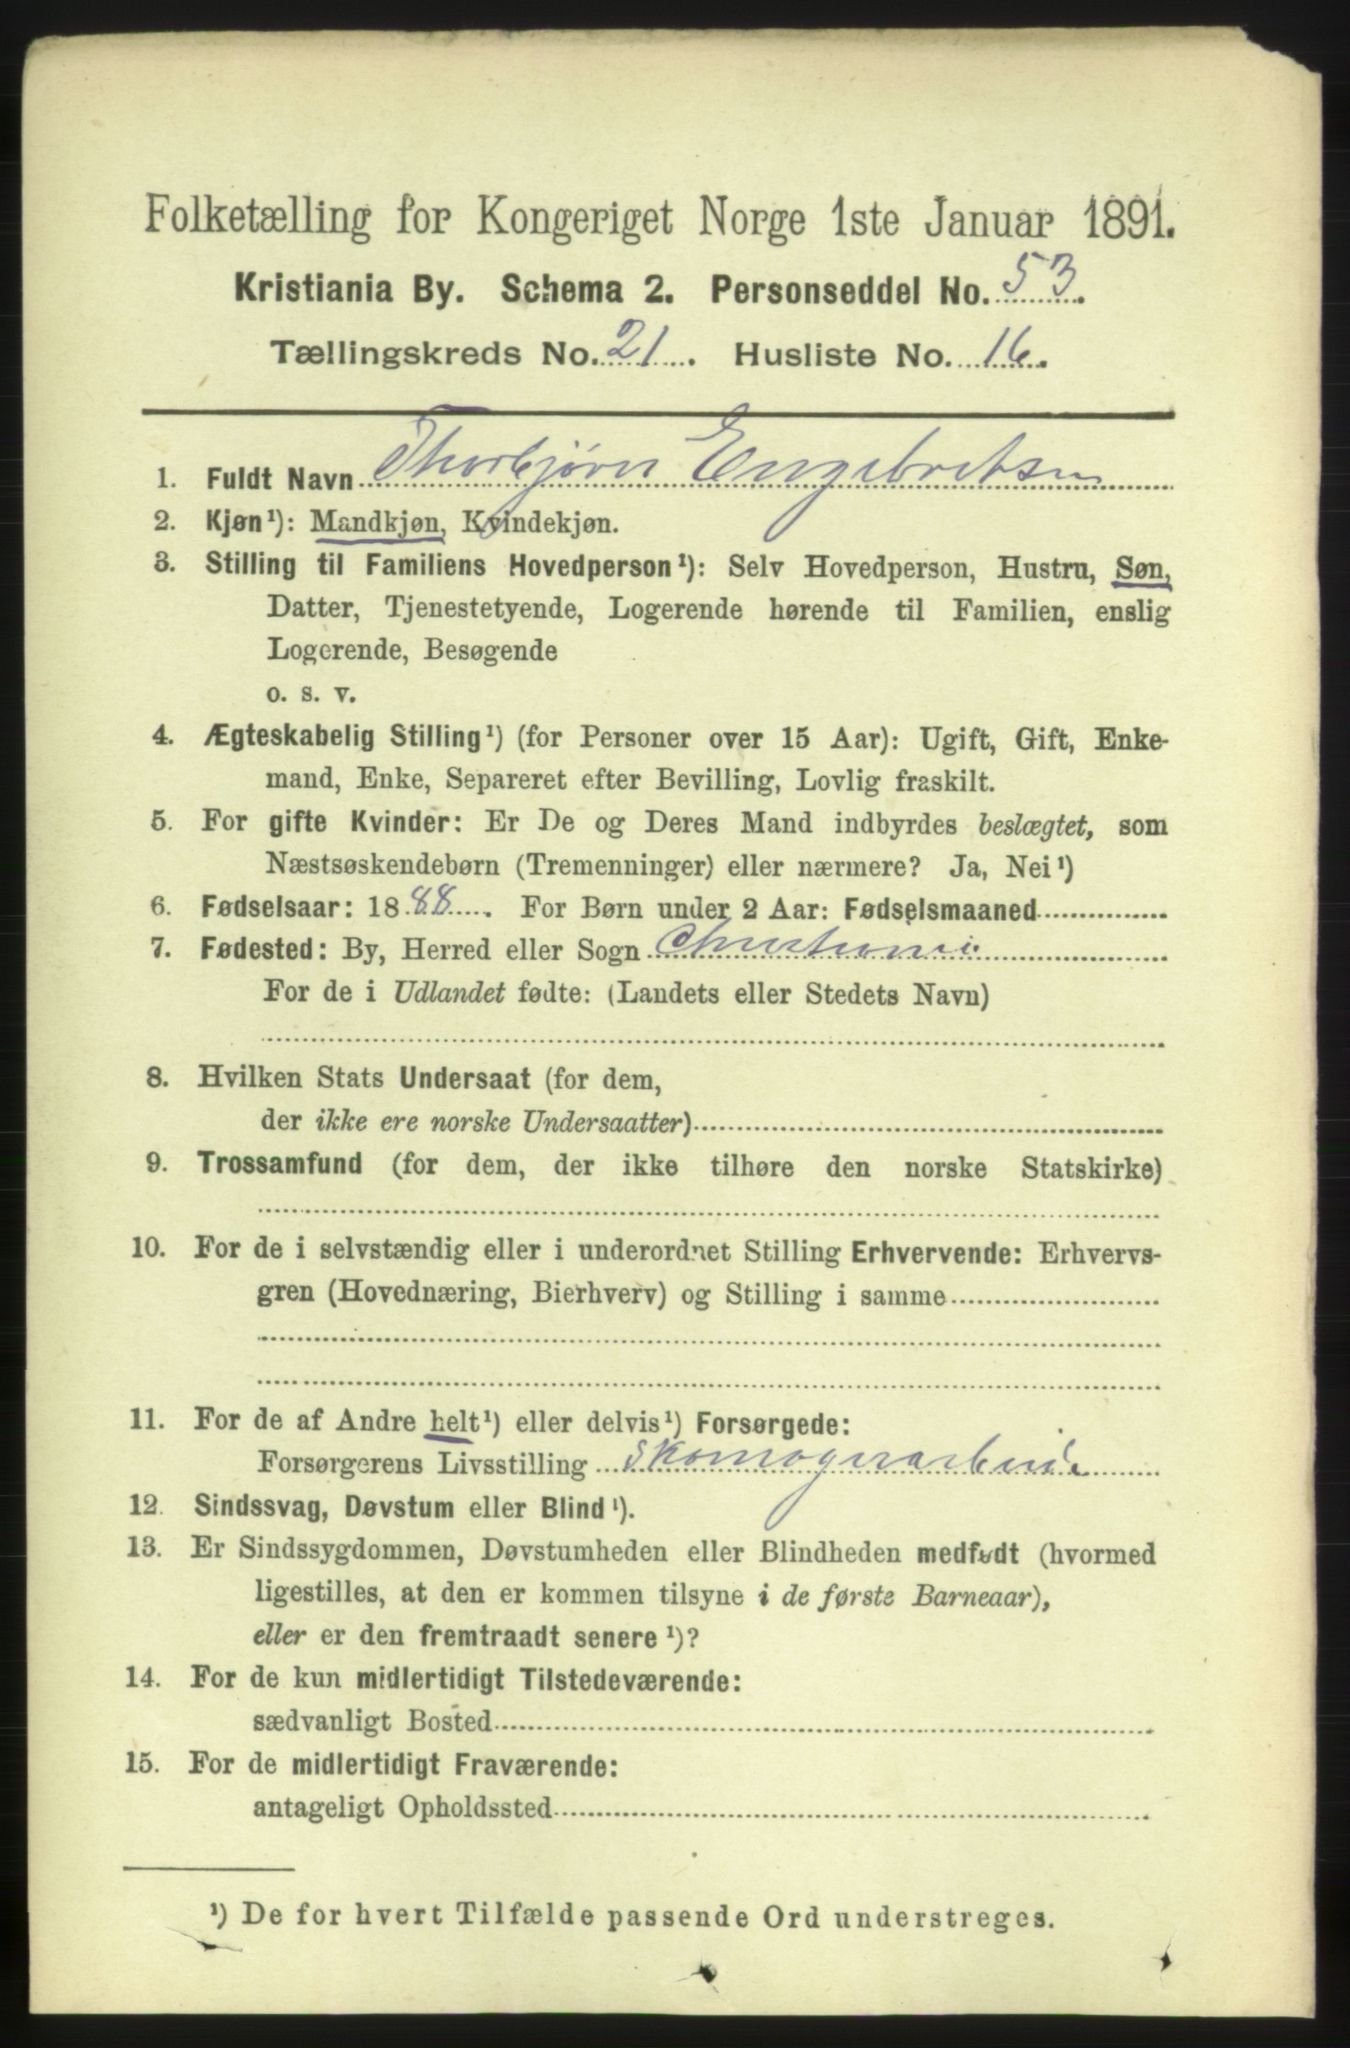 Folketælling for Kongeriget Norge 1ste Januar 1891.
Kristiania By. Schema 2. Personseddel No. 53.
Tællingskreds No. 21. Husliste No. 16.
1. Fuldt Navn Thorbjørn Engebretsen
2. Kjøn¹): Mandkjøn, Kvindekjøn.
3. Stilling til Familiens Hovedperson¹): Selv Hovedperson, Hustru, Søn,
Datter, Tjenestetyende, Logerende hørende til Familien, enslig
Logerende, Besøgende
o. s. v.
4. Ægteskabelig Stilling¹) (for Personer over 15 Aar): Ugift, Gift, Enke-
mand, Enke, Separeret efter Bevilling, Lovlig fraskilt.
5. For gifte Kvinder: Er De og Deres Mand indbyrdes beslægtet, som
Næstsøskendebørn (Tremenninger) eller nærmere? Ja, Nei¹)
6. Fødselsaar: 1888. For Børn under 2 Aar: Fødselsmaaned
7. Fødested: By, Herred eller Sogn Christiania
For de i Udlandet fødte: (Landets eller Stedets Navn)
8. Hvilken Stats Undersaat (for dem,
der ikke ere norske Undersaatter)
9. Trossamfund (for dem, der ikke tilhøre den norske Statskirke)
10. For de i selvstændig eller i underordnet Stilling Erhvervende: Erhvervs-
gren (Hovednæring, Bierhverv) og Stilling i samme
11. For de af Andre helt¹) eller delvis¹) Forsørgede:
Forsørgerens Livsstilling Skomagerarbeide
12. Sindssvag, Døvstum eller Blind¹).
13. Er Sindssygdommen, Døvstumheden eller Blindheden medfødt (hvormed
ligestilles, at den er kommen tilsyne i de første Barneaar),
eller er den fremtraadt senere¹)?
14. For de kun midlertidigt Tilstedeværende:
sædvanligt Bosted
15. For de midlertidigt Fraværende:
antageligt Opholdssted
¹) De for hvert Tilfælde passende Ord understreges.